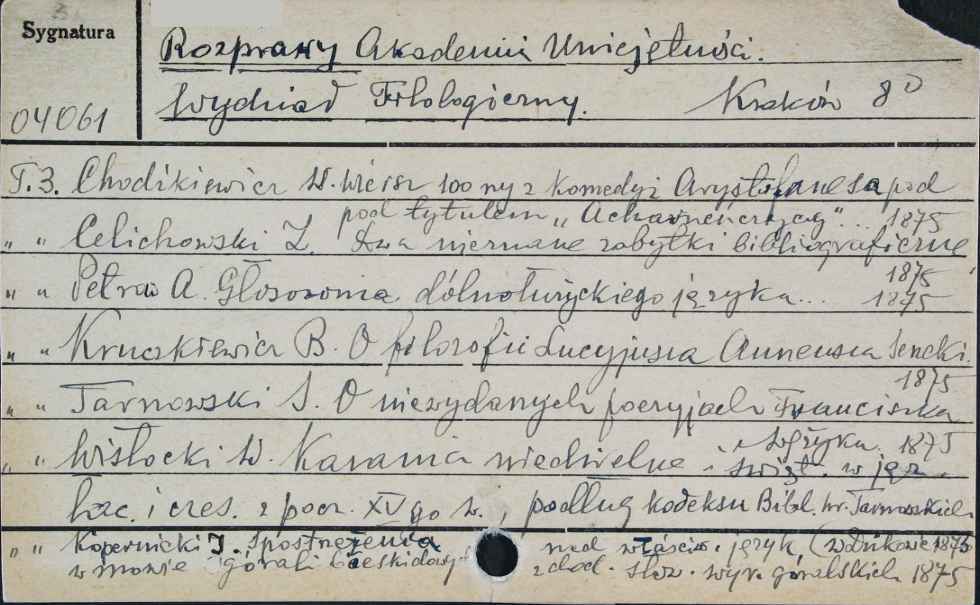 Sygnatura
Rozprawy Akademii Umiejętności.
Wydział Filologiczny. Kraków 8º
04061
T.3. Chodźkiewicz W. Wiersz 100ny z komedyi Arystofanesa pod
pod tytułem „Acharneńczycy"... 1875
„ „ Celichowski Z. Dwa nieznane zabytki bibliograficzne
1875
„ „ Petrow A. Głosownia dólnołużyckiego języka... 1875
„ „ Kruczkiewicz B. O filozofii Lucyjusza Anneusza Seneki.
1875
„ „ Tarnowski S. O niewydanych poezyjach Franciszka
Wężyka. 1875
„ „ Wisłocki W. Kazania niedzielne i świąt. w jęz.
łac. i czes. z pocz. XVgo w., podług kodeksu Bibl. hr. Tarnowskich
„ „ Kopernicki I. Spostrzeżenia nad właściw. język. (w Dzikowie 1875
w mowie górali bieskidowych z dod. słow. wyr. góralskich 1875